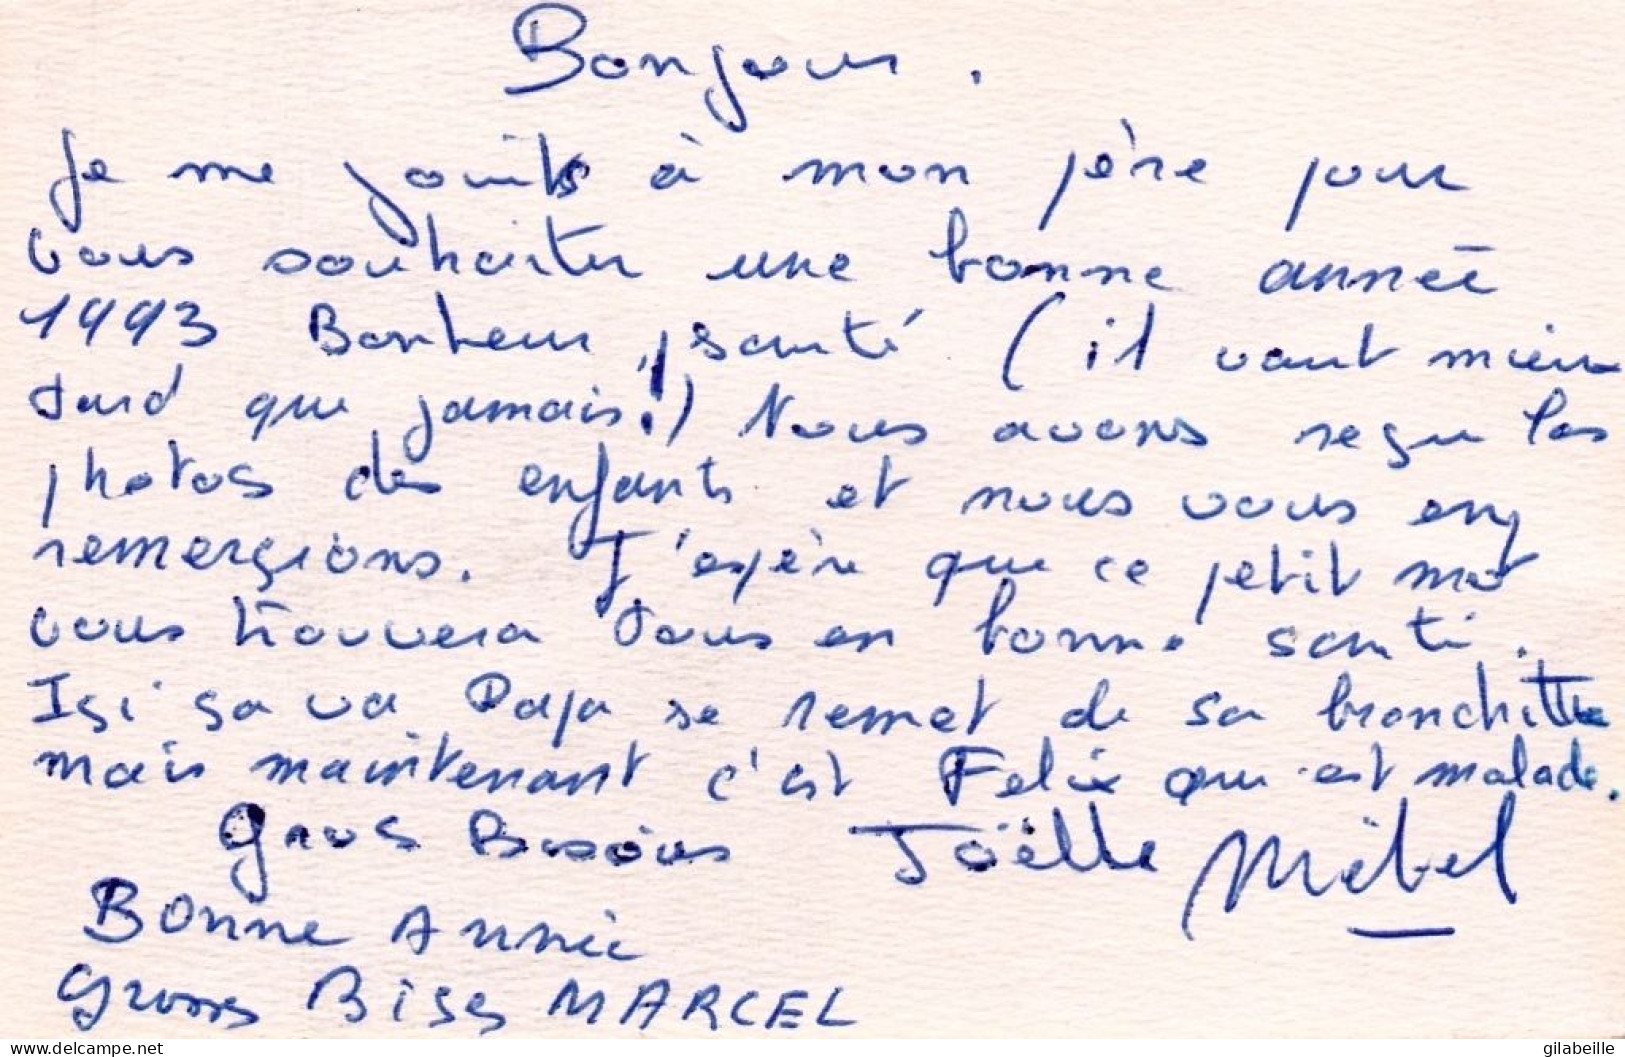 Bonjour.
Je me joints à mon père pour
vous souhaiter une bonne année
1993 Bonheur, santé (il vaut mieux
tard que jamais!) Nous avons reçu les
photos des enfants et nous vous en
remerçions. J'espère que ce petit mot
vous trouvera tous en bonne santé.
Içi ça va Papa se remet de sa bronchitte
mais maintenant c'est Felix qui est malade.
Gros Bisous Joëlle
Bonne Année
Gross Bises MARCEL
www.delcampe.net
gilabeille